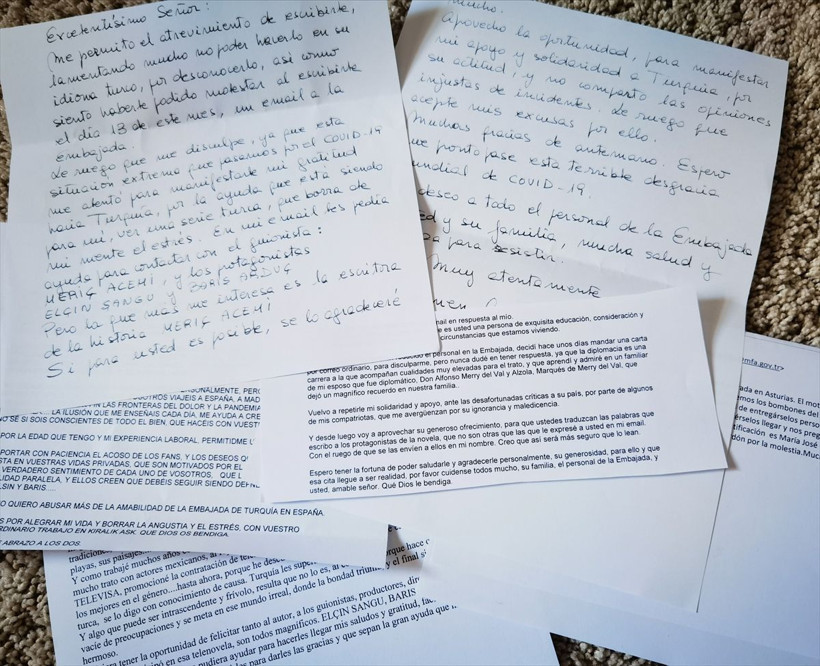 Excelentísimo Señor:
Me permito el atrevimiento de escribirle,
lamentando mucho no poder hacerlo en su
idioma turco, por desconocerlo, así como
siento haberle podido molestar al escribirle
el día 13 de este mes, un email a la
embajada.
Le ruego que me disculpe, ya que esta
situación extrema que pasamos por el COVID-19
me atentó para manifestarle mi gratitud
hacia Turquía, por la ayuda que está siendo
para mi, ver una serie turca, que borra de
mi mente el estrés. En mi email les pedía
ayuda para contactar con el guionista:
MERIÇ ACEMI, y los protagonistas
ELÇIN SANGU y BARIS ARDUÇ
Pero la que más me interesa es la escritora
de la historia MERIÇ ACEMI
Si para usted es posible, se lo agradeceré
mucho.
Aprovecho la oportunidad, para manifestar
mi apoyo y solidaridad a Turquía, por
su actitud, y no comparto las opiniones
injustas de incidentes. Le ruego que
acepte mis excusas por ello.
Muchas gracias de antemano. Espero
que pronto pase esta terrible desgracia
mundial de COVID-19.
deseo a todo el personal de la Embajada
y su familia, mucha salud y
para resistir.
Muy atentamente
mail en respuesta al mio.
es usted una persona de exquisita educación, consideración y
circunstancias que estamos viviendo.
el personal en la Embajada, decidí hace unos días mandar una carta
por correo ordinario, para disculparme, pero nunca dudé en tener respuesta, ya que la diplomacia es una
carrera a la que acompañan cualidades muy elevadas para el trato, y que aprendí y admiré en un familiar
de mi esposo que fue diplomático, Don Alfonso Merry del Val y Alzola, Marqués de Merry del Val, que
dejó un magnífico recuerdo en nuestra familia..
Vuelvo a repetirle mi solidaridad y apoyo, ante las desafortunadas críticas a su país, por parte de algunos
de mis compatriotas, que me avergüenzan por su ignorancia y maledicencia.
Y desde luego voy a aprovechar su generoso ofrecimiento, para que ustedes traduzcan las palabras que
escribo a los protagonistas de la novela, que no son otras que las que le expresé a usted en mi email.
Con el ruego de que se las envíen a ellos en mi nombre. Creo que así será más seguro que lo lean.
Espero tener la fortuna de poder saludarle y agradecerle personalmente, su generosidad, para ello y que
esa cita llegue a ser realidad, por favor cuídense todos mucho, su familia, el personal de la Embajada, y
usted, amable señor. Qué Dios le bendiga.
mfa.gov.tr>
ada en Asturias. El mot
mos los bombones del
de entregárselos perso
érselos llegar y nos preg
tificación es María José
dón por la molestia.Muc
ERSONALMENTE, PER
OTROS VIAJEIS A ESPAÑA, A MAD
EN LAS FRONTERAS DEL DOLOR Y LA PANDEMIA
LA ILUSIÓN QUE ME ENSEÑAIS CADA DÍA, ME AYUDA A CRE
NO SE SI SOIS CONSCIENTES DE TODO EL BIEN, QUE HACÉIS CON VUEST
POR LA EDAD QUE TENGO Y MI EXPERIENCIA LABORAL, PERMITIDME
PORTAR CON PACIENCIA EL ACOSO DE LOS FANS, Y LOS DESEOS
STA EN VUESTRAS VIDAS PRIVADAS, QUE SON MOTIVADOS POR EL
VERDADERO SENTIMIENTO DE CADA UNO DE VOSOTROS, QUE
LIDAD PARALELA, Y ELLOS CREEN QUE DEBÉIS SEGUIR SIENDO
LSIN Y BARIS....
O QUIERO ABUSAR MÁS DE LA AMABILIDAD DE LA EMBAJADA DE TURQUÍA EN ESPAÑA.
S POR ALEGRAR MI VIDA Y BORRAR LA ANGUSTIA Y EL ESTRÉS, CON VUESTRO
ORDINARIO TRABAJO EN KIRALIK ASK. QUE DIOS OS BENDIGA.
ABRAZO A LOS DOS.
playas, sus paisajes
Y como trabajé muchos años
mucho trato con actores mexicanos, al
TELEVISA, promocioné la contratación de
los mejores en el género....hasta ahora, porque he
turca, se lo digo con conocimiento de causa. Turquía les
Y algo que puede ser intrascendente y frívolo, resulta que no lo es, al
vacíe de preocupaciones y se meta en ese mundo irreal, donde la bondad y el final
hermoso.
tener la oportunidad de felicitar tanto al autor, a los guionistas, productores,
en esa telenovela, son todos magníficos. ELÇIN SANGU, BARIS
pudiera ayudar para hacerles llegar mis saludos y gratitud,
para darles las gracias y que sepan la gran ayuda que